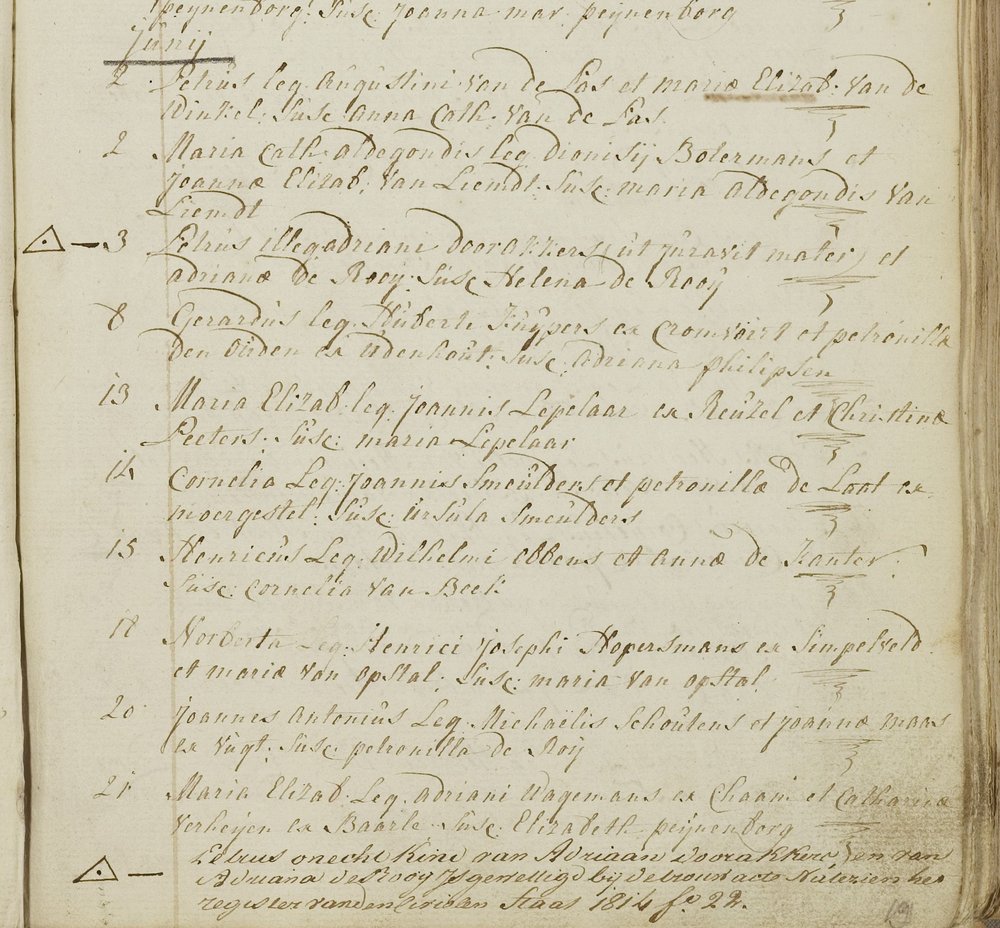 peijnenborg: Susc: Joanna mar. peijnenborg
Junij
2 Petrus leg. Augustini van de Pas et mariæ Elizab: van de
Winkel: Susc: Anna Cath: van de Pas.
2 Maria Cath: aldegondis leg: dionisij Botermans et
Joannæ Elizab: van Liemdt: Susc: maria aldegondis van
Liemdt
3 Petrus illeg. adriani doorakkers (ut juravit mater) et
adrianæ de Rooij: Susc: Helena de Rooij
8 Gerardus leg. Huberti Kuijpers ex Cromvoirt et petronilla
den Ouden ex Udenhout: Susc: Adriana philipsen
13 Maria Elizab: leg: Joannis Lepelaar ex Reuzel et Christinæ
Peeters: Susc: maria Lepelaar
14 Cornelia Leg: Joannis Smeulders et petronillæ de Laat ex
moergestel: Susc: Ursula Smeulders
15 Henricus Leg: Wilhelmi Ebbens et Annæ de Kanter:
Susc: Cornelia van Beek
18 Leg: Henrici Josephi Hopersmans ex Simpelveld
et mariæ van opstal: Susc: maria van opstal
20 Joannes Antonius Leg: Michaëlis Schoutens et Joannæ maas
ex Vugt: Susc: petronilla de Roij
21 Maria Elizab: Leg: adriani Wagemans ex Chaam et Catharinæ
Verheijen ex Baarle Susc: Elizabeth peijnenborg
Petrus onecht Kind van Adriaan Doorakkers en van
Adriana de Rooij Is gewettigd bij de trouwacte het
register van den Civielen Staat 1814 fo 22.